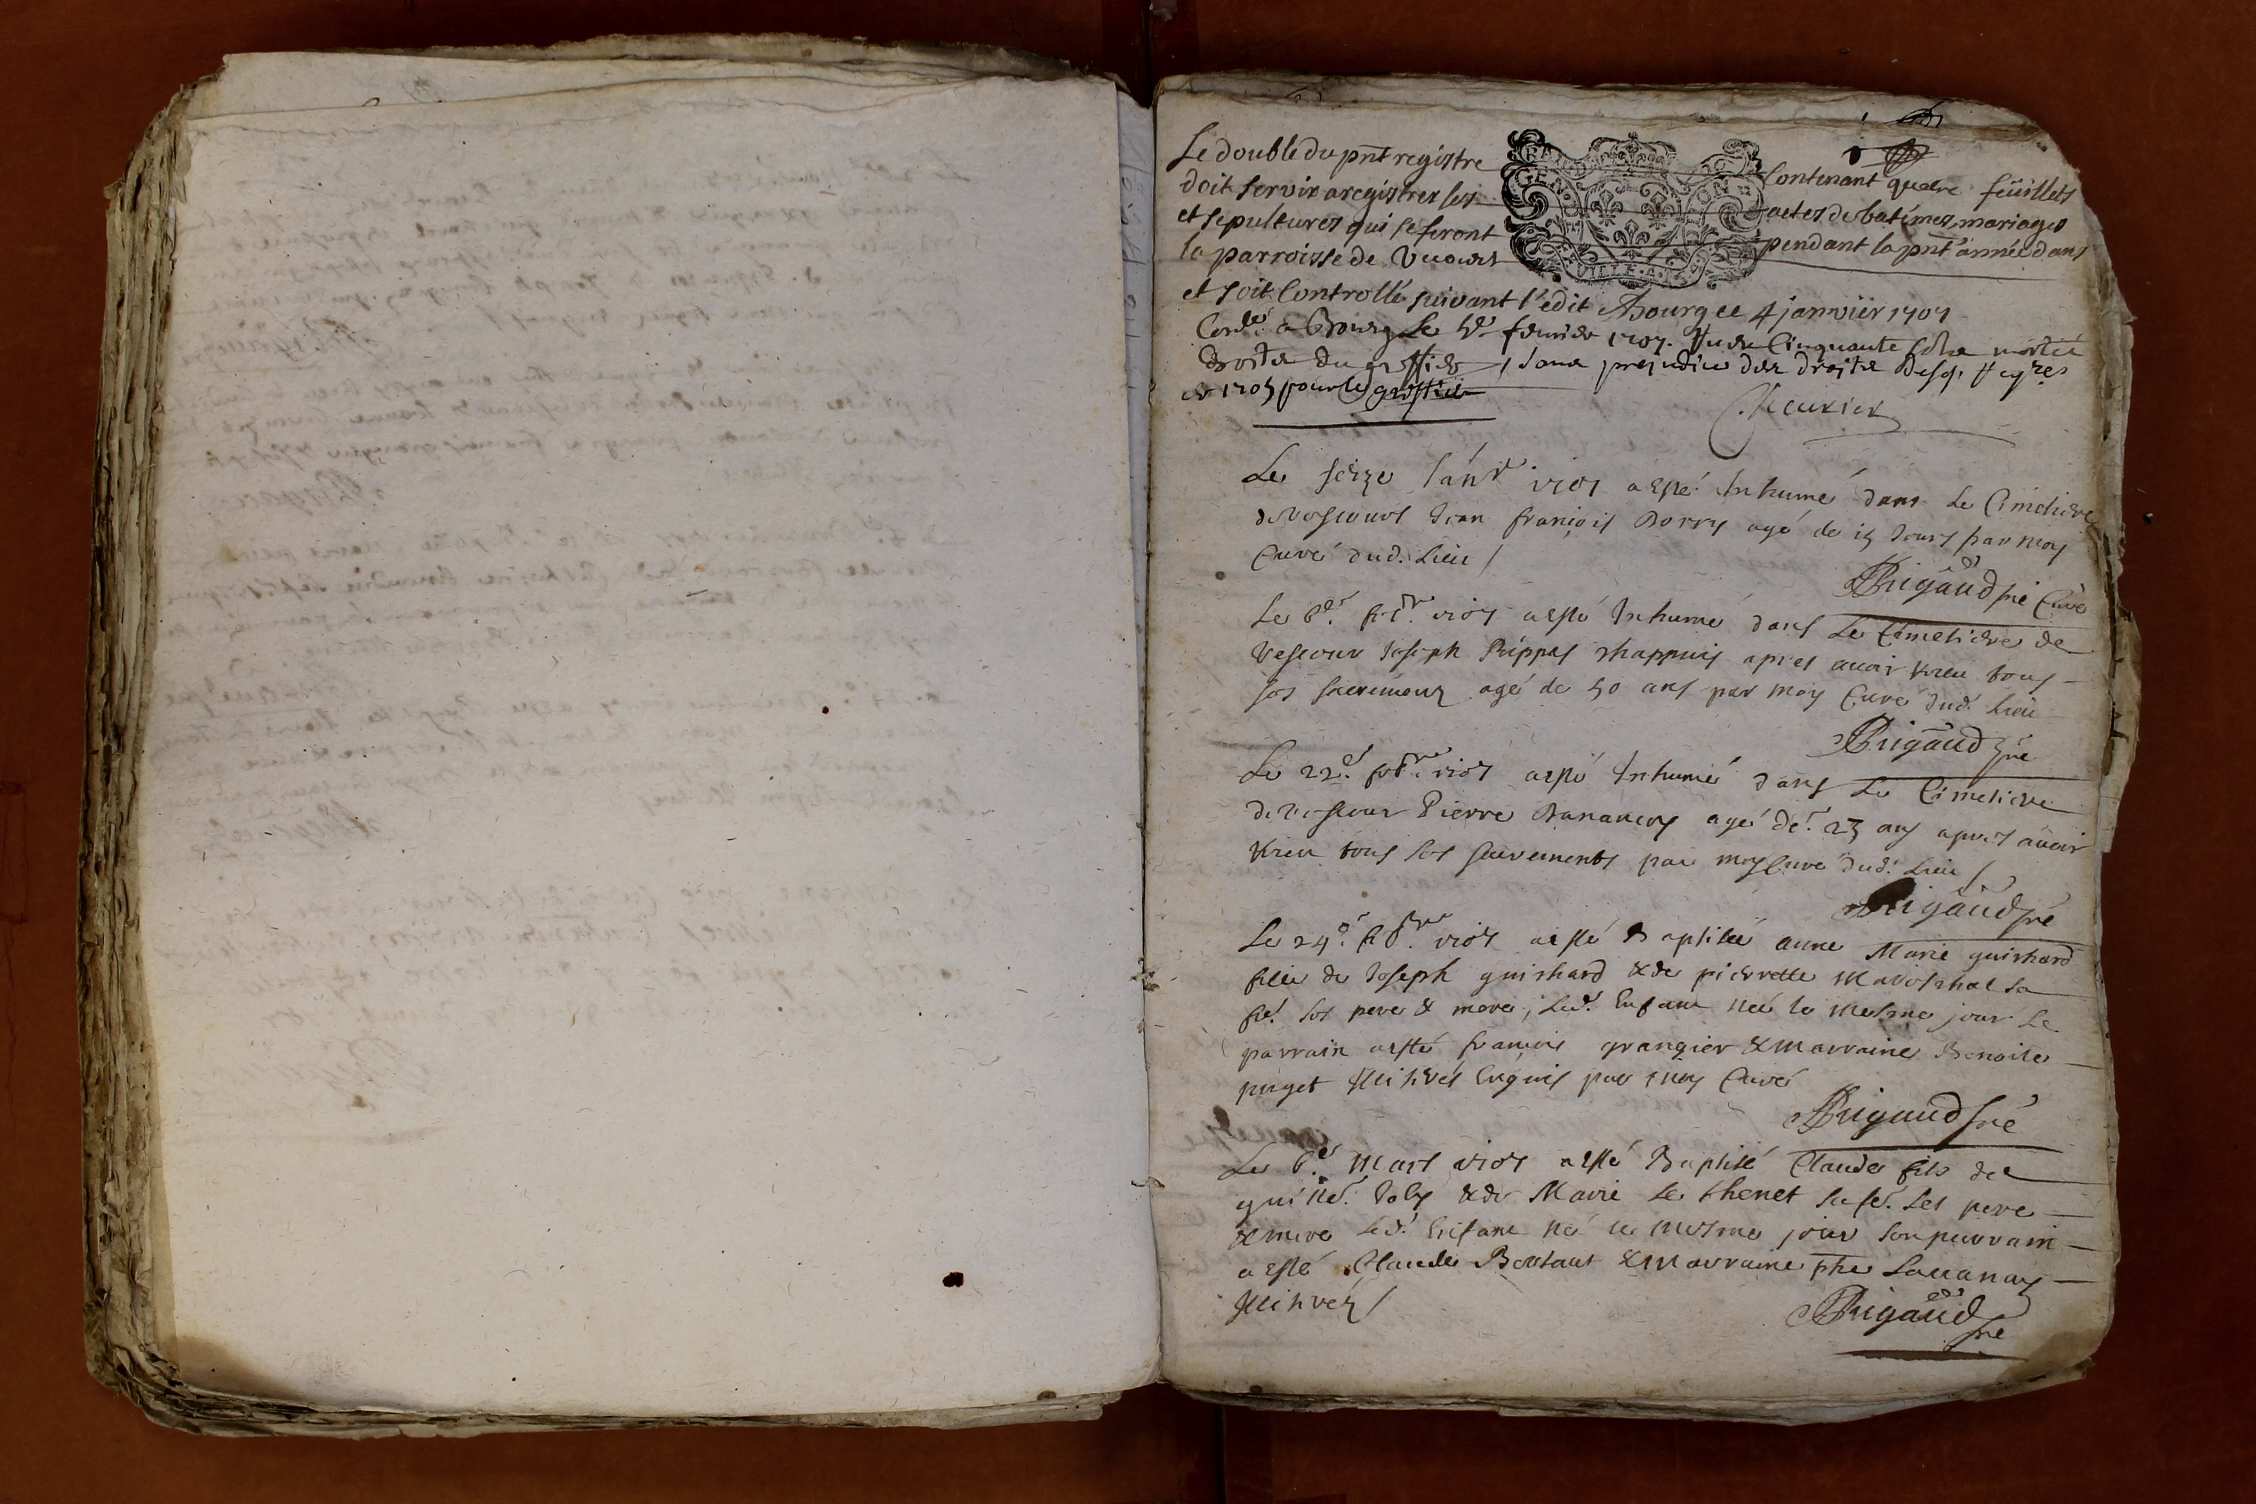 Le double du pnt registre Contenant quatre feüillets
doit servir a registrer les actes de batêmes, mariages
et sepultures qui se feront pendant la pnt année dans
la parroisse de
et soit Controllé suivant l'edit A bourg ce 4 janvier 1707
a Bourg Le fevrier 1707. Cinquante sols
droits du greffier sans prejudice des droits
pour le greffier
Le seize Janvr 1707 a esté Inhumé dans Le Cimetiere
de Vescours Jean françois Borry agé de 15 Jours par moy
Curé dud. Lieu /
Rigaud pre Curé
Le 6e. 1707 a esté Inhumé dans Le Cimetiere de
Vescour Joseph apres avoir receu tous
ses sacremens agé de 50 ans par moy Curé dud. Lieu
Rigaud pre
Le 22e. 1707 a esté Inhumé dans Le Cimetiere
de Vescour Pierre agé de. 23 ans apres avoir
receu tous ses sacrements par moy Curé dud. Lieu /
Rigaud pre
Le 24e. 1707 a esté Baptisée anne Marie guishard
fille de Joseph guishard & de pierrette Mareshal sa
fe. ses pere & mere, Led. Enfant née le mesme jour Le
parrain a esté françois grangier & Marraine Benoite
puget Illitérés Enquis par moy Curé
Rigaud pre
Le 6e. Mars 1707 a esté Baptisé Claude fils de
guille. Joly & de Marie Le shenet sa fe. ses pere
& mere Led. Enfant né le mesme jour son parrain
a esté Claude & Marraine
Rigaud pre